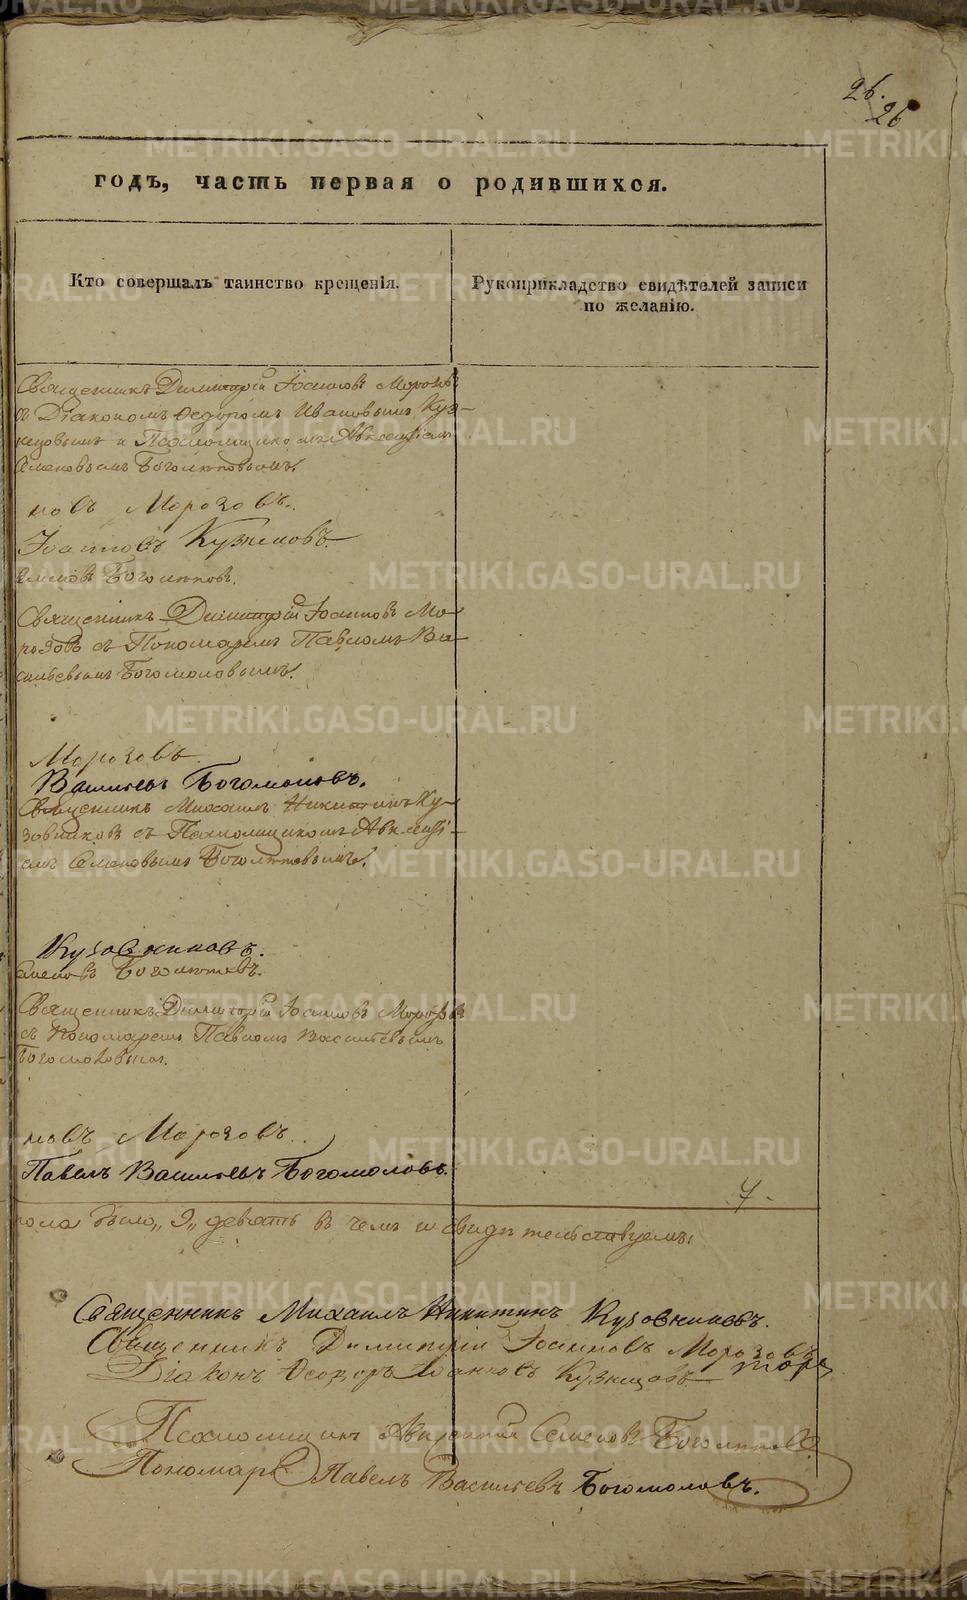 26.
26
годъ, часть первая о родившихся.
Кто совершалъ таинство крещенія.
Рукоприкладство свидѣтелей записи
по желанію.
Священникъ Димитрій Іоанновъ Морозовъ
съ Діакономъ Ѳедоромъ Ивановымъ Куз-
нецовымъ и Псаломщикомъ Авксентіемъ
Семеновымъ Боголѣповымъ.
новъ Морозовъ.
Іоанновъ Кузнецовъ
Семеновъ Боголѣповъ.
Священникъ Димитрій Іоанновъ Мо-
розовъ съ Пономаремъ Павломъ Ва-
сильевымъ Богомоловымъ.
Морозовъ
Васильевъ Богомоловъ.
Священникъ Михаилъ Никитинъ Ку-
зовниковъ съ Псаломщикомъ Авксенті-
емъ Семеновымъ Боголѣповымъ.
Кузовниковъ.
Семеновъ Боголѣповъ.
Священникъ Димитрій Іоанновъ Морозовъ
съ Пономаремъ Павломъ Васильевымъ
Богомоловымъ.
новъ Морозовъ.
Павелъ Васильевъ Богомоловъ.
пола было „9„ девять въ чемъ и свидѣтельствуемъ:
Священникъ Михаилъ Никитинъ Кузовниковъ.
Священникъ Димитрій Іоанновъ Морозовъ
Діаконъ Ѳеодоръ Іоанновъ Кузнецовъ
Псаломщикъ Авксентій Семеновъ Боголѣповъ
Пономарь Павелъ Васильевъ Богомоловъ.
METRIKI.GASO-URAL.RU